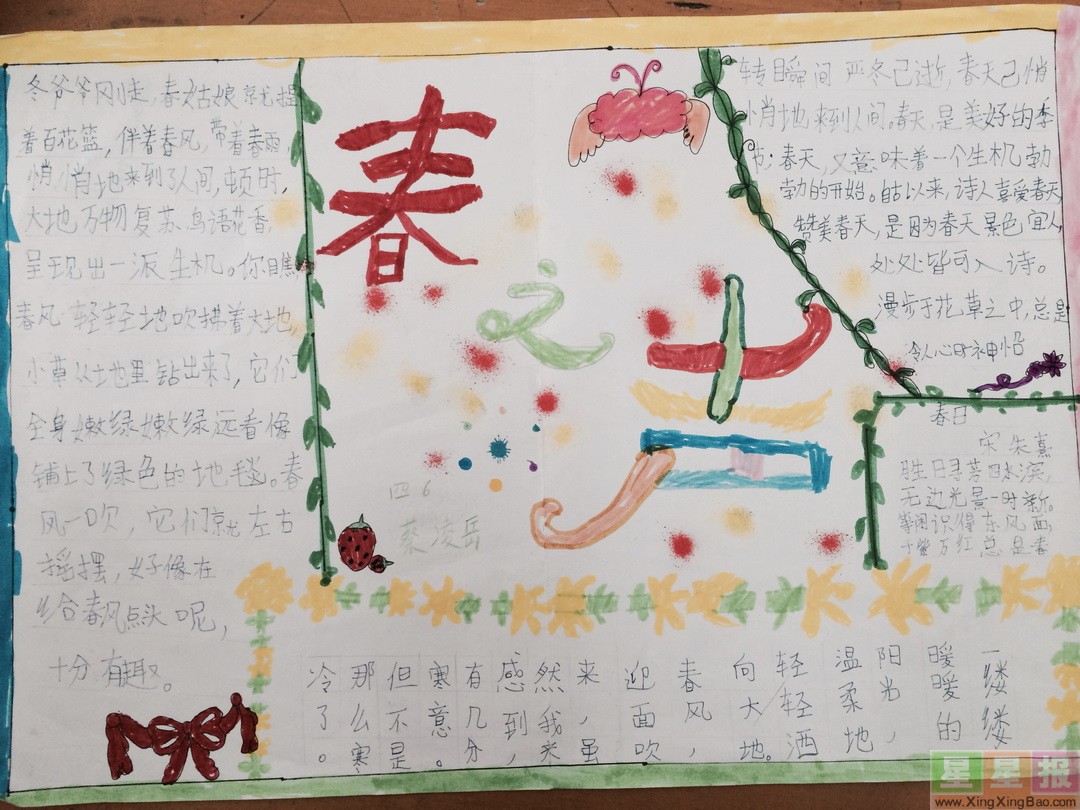 冬爷爷刚走,春姑娘就提
着百花篮,伴着春风,带着春雨,
悄悄地来到了人间,顿时,
大地万物复苏.鸟语花香,
呈现出一派生机。你瞧
春风轻轻地吹拂着大地,
小草从土地里钻出来了,它们
全身嫩绿嫩绿远看像
铺上了绿色的地毯。春
风一吹,它们就左右
摇摆,好像在
给春风点头呢,
十分有趣。
春之声
四6
蔡凌岳
转瞬间 严冬已逝,春天已悄
悄地来到人间。春天,是美好的季
节;春天,又意味着一个生机勃
勃的开始。自古以来,诗人喜爱春天
赞美春天,是因为春天景色宜人,
处处皆可入诗。
漫步于花草之中,总是
令人心旷神怡
春日
宋 朱熹
胜日寻芳泗水滨,
无边光景一时新。
等闲识得东风面
十紫万红总是春
一缕缕
暖暖的
阳光,
温柔地
轻轻洒
向大地。
春风,
迎面吹
来,虽
然我来
感到,
有几分
寒意。
但不是
那么寒
冷了。
星星报
www.XingXingBao.com